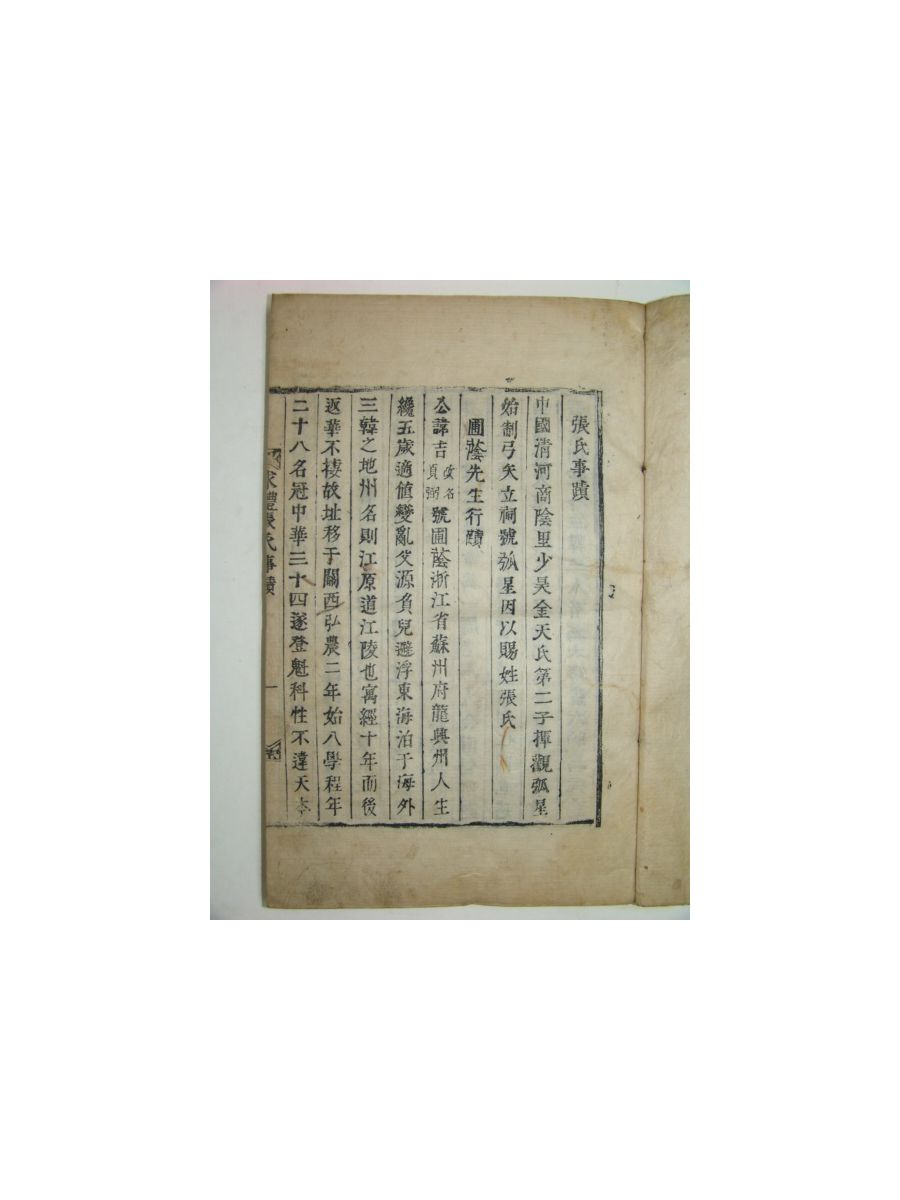 張氏事蹟
中國清河商陰里少昊金天氏第二子揮觀弧星
始制弓矢立祠號弧星因以賜姓張氏
圃蔭先生行蹟
公諱吉改名貞弼號圃蔭浙江省蘇州府龍興州人生
纔五歲適値變亂父源負兒避浮東海泊于海外
三韓之地州名則江原道江陵也寓經十年而後
返華不棲故址移于關西弘農二年始入學程年
二十八名冠中華三十四遂登魁科性不違天本
求禮張氏事蹟 一